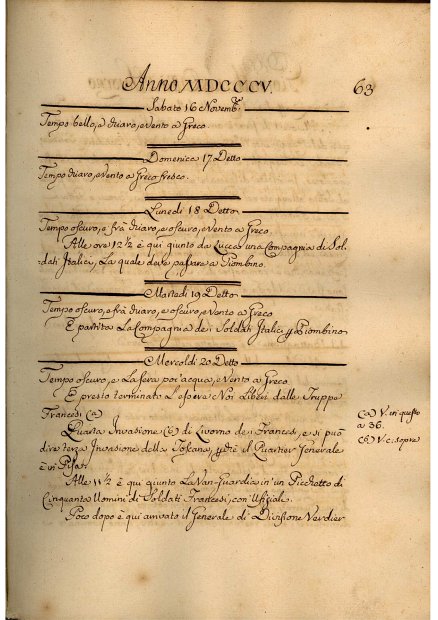 Anno MDCCCV.
63
Sabato 16 Novemb.e
Tempo bello, e chiaro, e Vento a Greco
Domenica 17 Detto
Tempo chiaro, e Vento a Greco fresco.
Lunedi 18 Detto
Tempo oscuro, e frà chiaro, e oscuro, e Vento a Greco
Alle ore 12½ è qui giunto da Lucca una Compagnia di Sol-
dati Italici, La quale deve passare a Piombino.
Martedi 19 Detto
Tempo oscuro, e frà chiaro, e oscuro, e Vento a Greco
È partita La Compagnia dei Soldati Italici p Piombino
Mercoldi 20 Detto
Tempo oscuro, e La sera poi acqua, e Vento a Greco
È presto terminato L'essere Noi Liberi dalle Truppe
Francesi (a)
Quarta Invasione (b) di Livorno dei Francesi, e si può
dire terza Invasione della Toscana, il Quartier Generale
è in Pisa.
Alle 11½ è qui giunto La Van-Guardia in un Picchetto di
Cinquanta Uomini di Soldati Francesi, con Ufiziali.
Poco dopo è qui arrivato il Generale di Divisione Verdier
(a) V. in questo
a 36.
(b) V. c. sopra